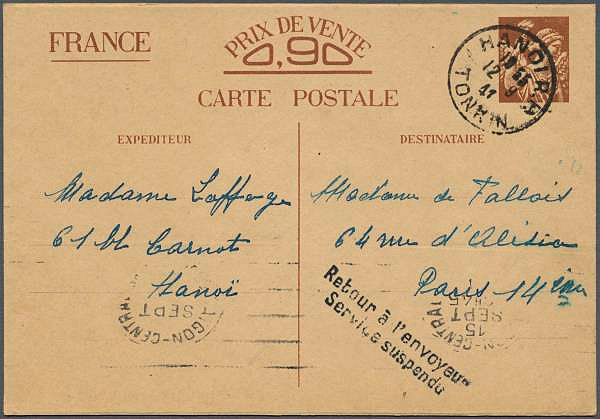 FRANCE
PRIX DE VENTE
0,90
CARTE POSTALE
HANOI R.P
12 9
41
TONKIN
EXPEDITEUR
DESTINATAIRE
Madame Laffage
61 bd Carnot
Hanoï
Madame de Fallois
64 rue d'Alésia
Paris 14ième
Retour à l'envoyeur
Service suspendu
GON-CENTRA
SEPT
ON-CENTRAL
15
SEPT